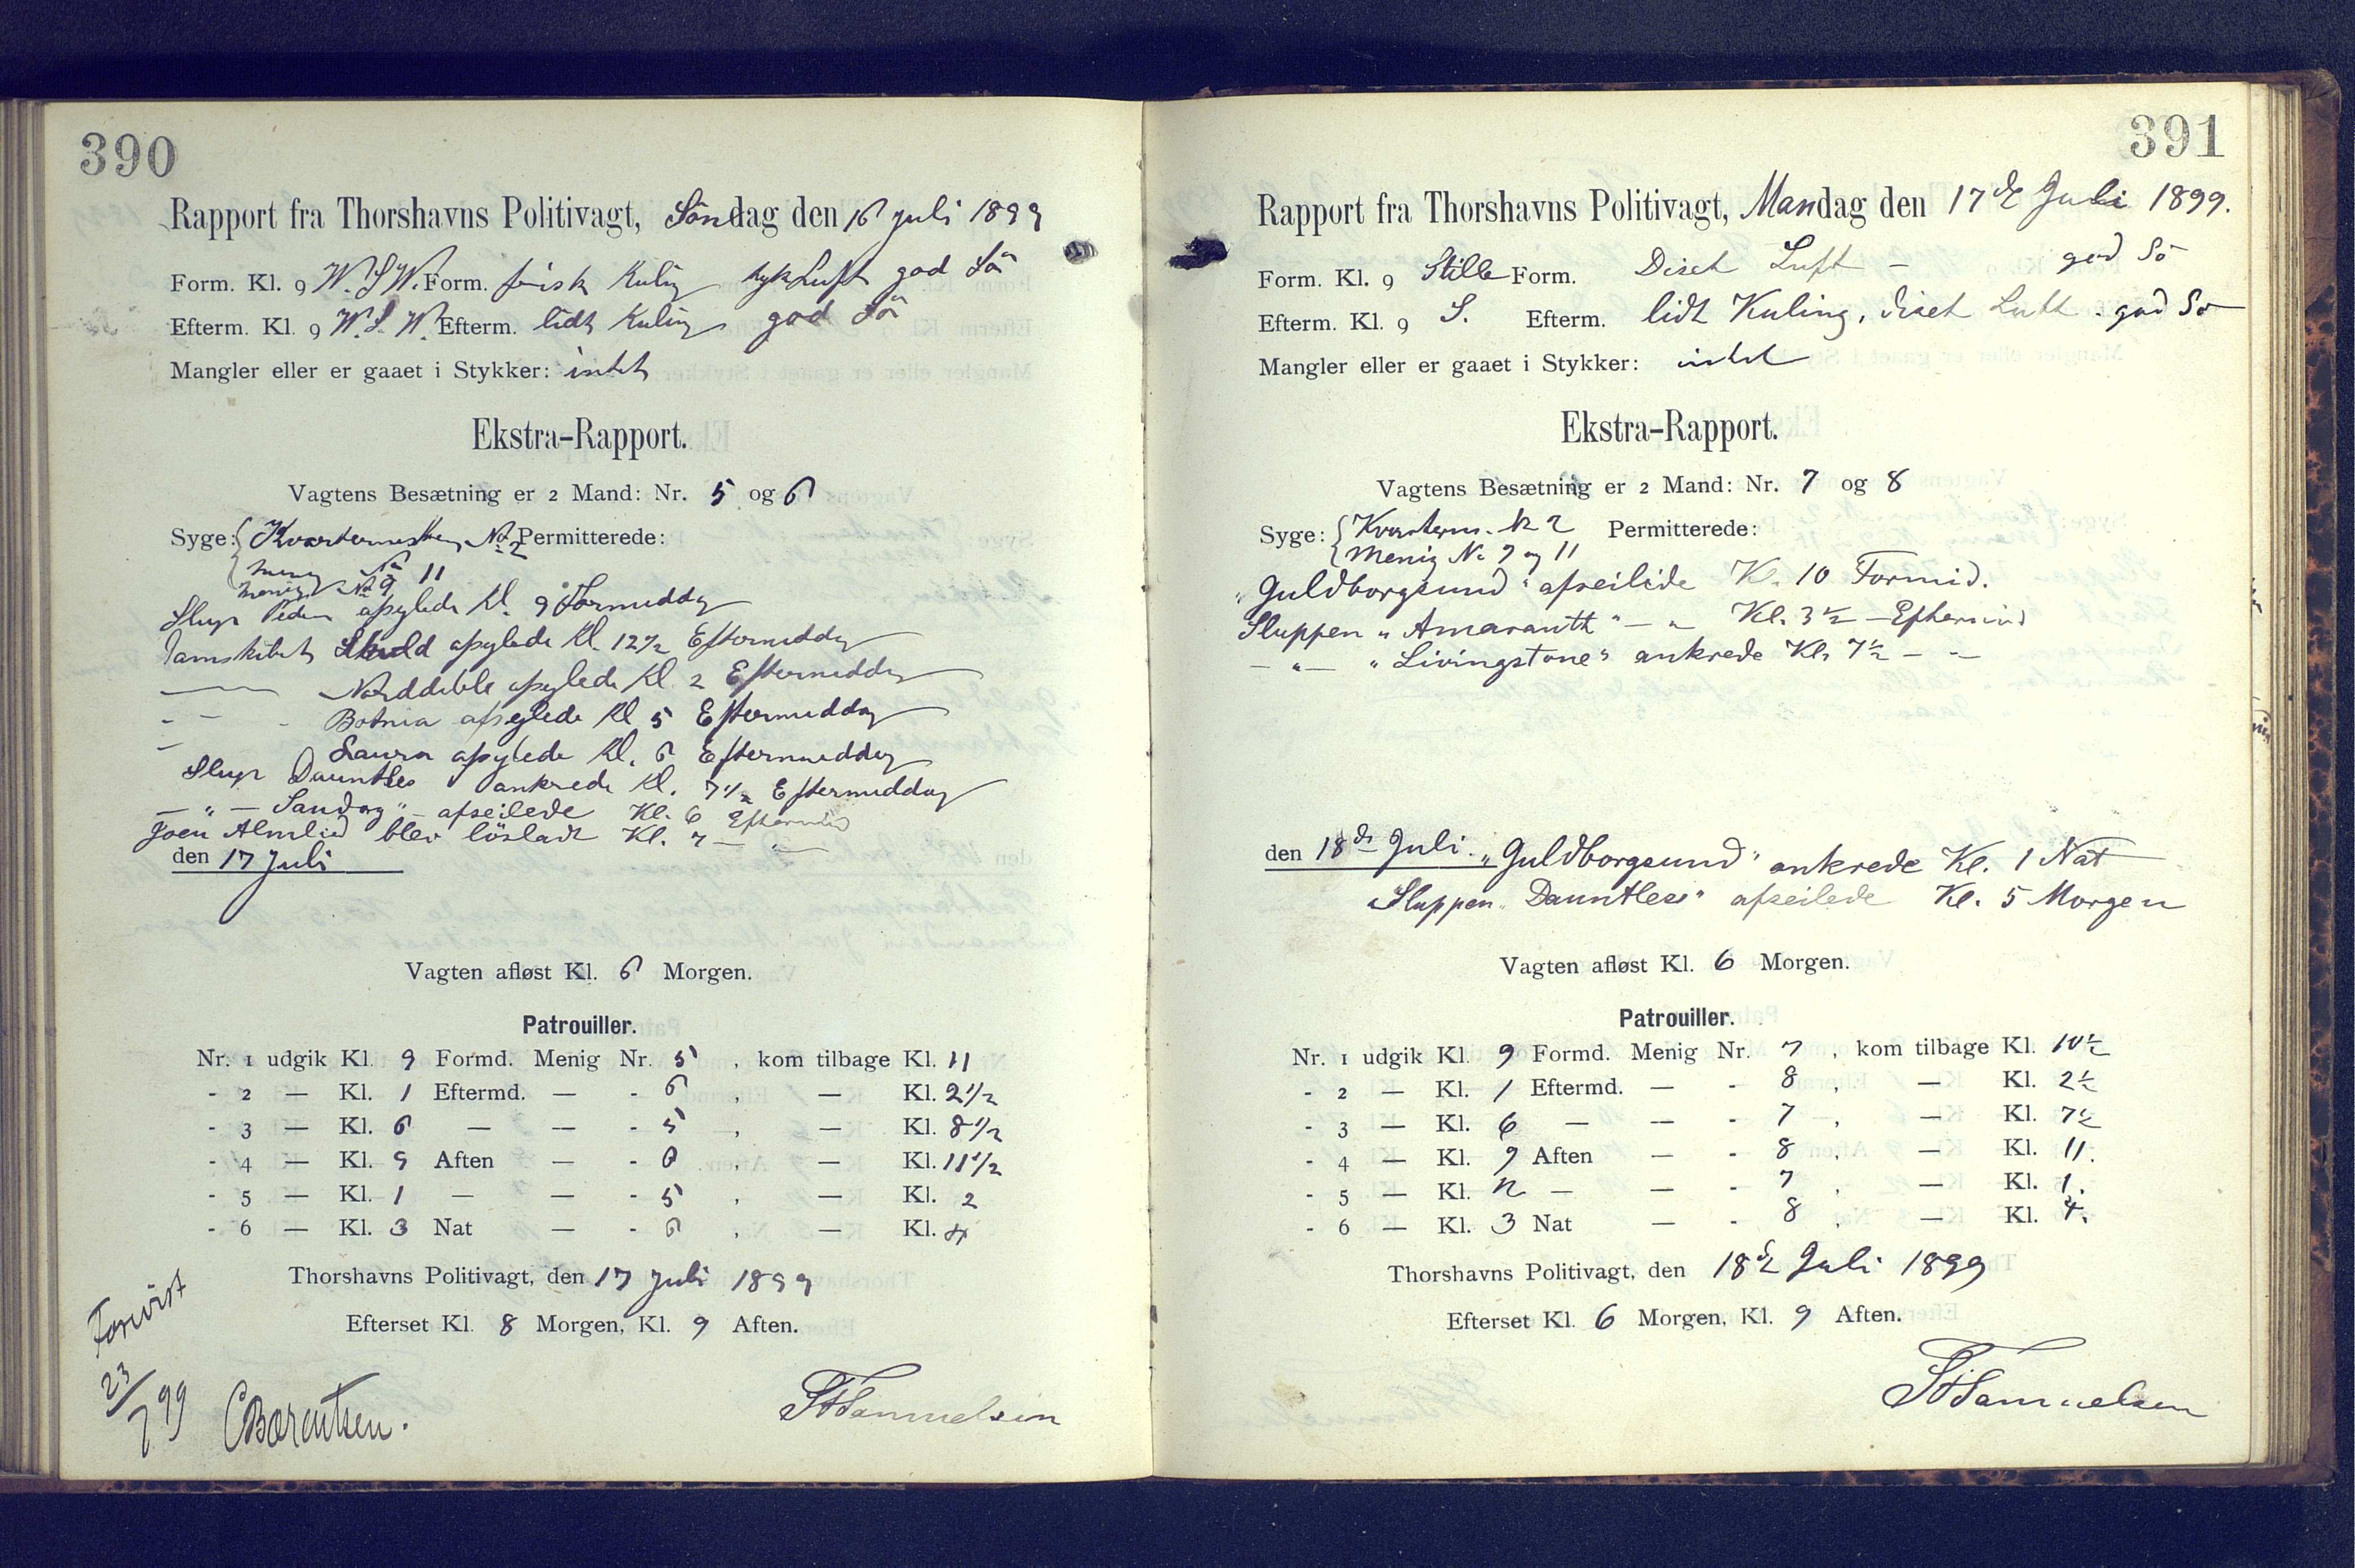 390
Rapport fra Thorshavns Politivagt, Søndag den 16 juli 1899
Form. Kl. 9 W.S.W. Form. frisk Kuling tyk Luft god Sö
Efterm. Kl. 9 W.S.W. Efterm. lidt Kuling god Sö
Mangler eller er gaaet i Stykker: intet
Ekstra-Rapport.
Vagtens Besætning er 2 Mand: Nr. 5 og 6
Syge: Kvartermester No 2 Permitterede:
Menig No 11
Menig No 9
Slup afsylede Kl. 9 Formiddag
Damskibet Skuld afsylede Kl. 12 1/2 Eftermiddag
— Norddeble afsylede Kl 2 Eftermiddag
- - - Botnia afseglede Kl 5 Eftermiddag
— Laura afsylede Kl. 6 Eftermiddag
Slup Dauntles ankrede Kl. 7 1/2 Eftermiddag
— " — Sandoy" afseilede Kl. 6 Eftermid
Joen Almlid blev lösladt Kl. 7 — " —
den 17 Juli
Vagten afløst Kl. 6 Morgen.
Patrouiller.
Nr. 1 udgik Kl. 9 Formd. Menig Nr. 5, kom tilbage Kl. 11
- 2 — Kl. 1 Eftermd. — - 6, — Kl. 2 1/2
- 3 — Kl. 6 — — - 5, — Kl. 8 1/2
- 4 — Kl. 9 Aften — - 6, — Kl. 11 1/2
- 5 — Kl. 1 — — - 5, — Kl. 2
- 6 — Kl. 3 Nat — - 6, — Kl. 4
Thorshavns Politivagt, den 17 Juli 1899
Efterset Kl. 8 Morgen, Kl. 9 Aften.
Forevist
23/7 99 CBærentsen.
Samuelsen
391
Rapport fra Thorshavns Politivagt, Mandag den 17de Juli 1899.
Form. Kl. 9 Stille Form. Diset Luft — god Sö
Efterm. Kl. 9 S. Efterm. lidt Kuling, diset Luft - god Sö
Mangler eller er gaaet i Stykker: intet
Ekstra-Rapport.
Vagtens Besætning er 2 Mand: Nr. 7 og 8
Syge: Kvarterm. No 2 Permitterede:
Menig No 9 og 11
"Guldborgsund" afseilede Kl. 10 Formid.
Sluppen "Amaranth" — " Kl. 3 1/2 — Eftermid
— " — "Livingstone" ankrede Kl. 7 1/2 — —
den 18de Juli. "Guldborgsund" ankrede Kl. 1 Nat
Sluppen "Dauntless" afseilede Kl. 5 Morgen
Vagten afløst Kl. 6 Morgen.
Patrouiller.
Nr. 1 udgik Kl. 9 Formd. Menig Nr. 7, kom tilbage Kl. 10 1/2
- 2 — Kl. 1 Eftermd. — - 8, — Kl. 2 1/2
- 3 — Kl. 6 — — - 7, — Kl. 7 1/2
- 4 — Kl. 9 Aften — - 8, — Kl. 11.
- 5 — Kl. 12 — — - 7, — Kl. 1.
- 6 — Kl. 3 Nat — - 8, — Kl. 4.
Thorshavns Politivagt, den 18de Juli 1899
Efterset Kl. 6 Morgen, Kl. 9 Aften.
Samuelsen